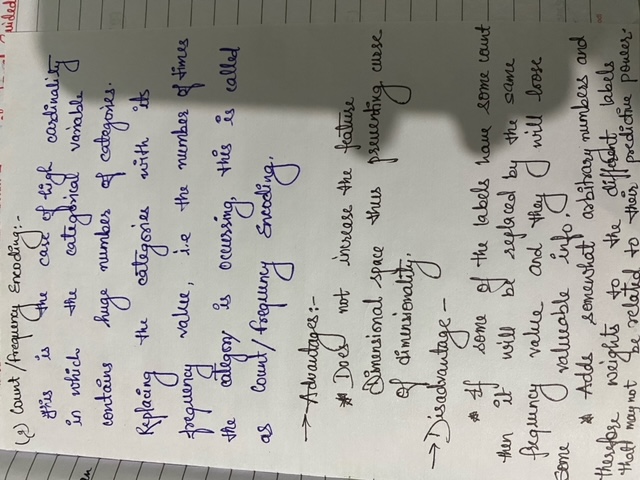 (3) Count/Frequency Encoding:-
This is the case of high cardinality
in which the categorical variable
contains huge number of categories.
Replacing the categories with its
frequency value, i.e the number of times
the category is occurring, this is called
as Count/Frequency Encoding.
→ Advantages:-
* Does not increase the feature
Dimensional space thus preventing curse
of dimensionality.
→ Disadvantage -
* If some of the labels have some count
then it will be replaced by the same
frequency value and they will loose
some valueable info.
* Adds somewhat arbitrary numbers and
therefore weights to the different labels
that may not be related to their predictive power.